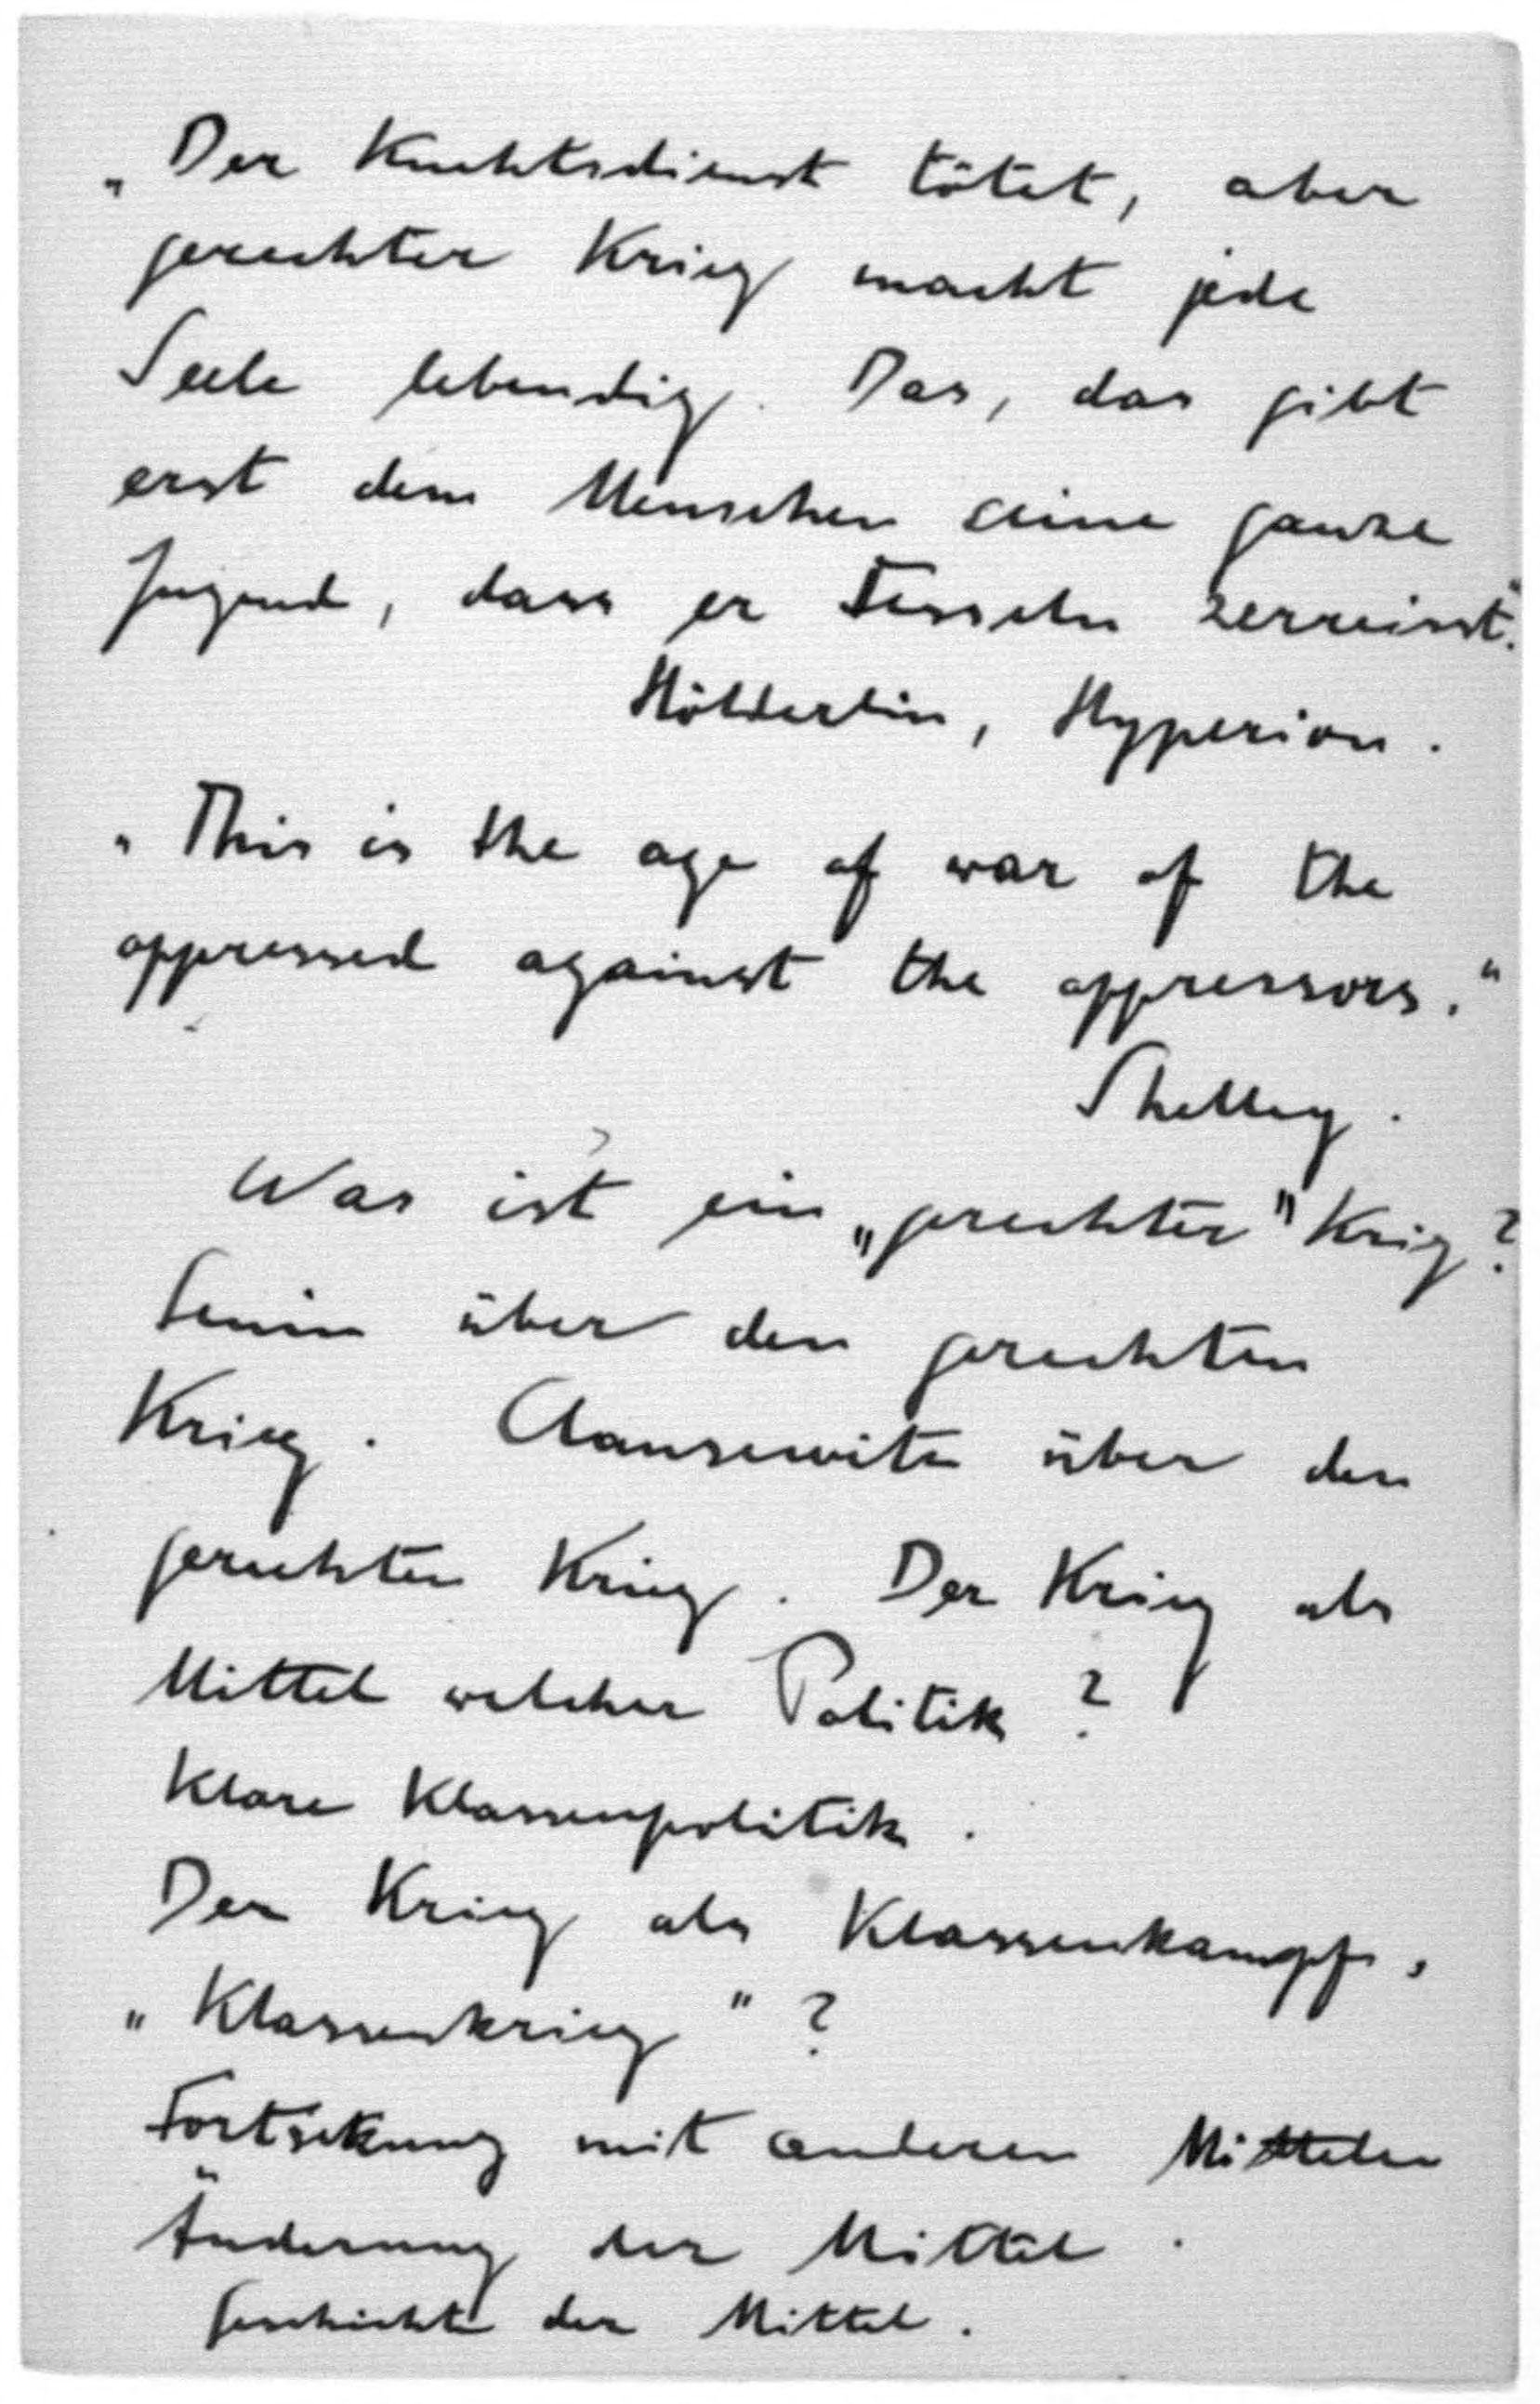 „Der Knechtsdienst tötet, aber
gerechter Krieg macht jede
Seele lebendig. Das, das gibt
erst dem Menschen seine ganze
Jugend, dass er Fesseln zerreisst."
Hölderlin, Hyperion.
„This is the age of war of the
oppressed against the oppressors."
Shelley.
Was ist ein „gerechter" Krieg?
Lenin über den gerechten
Krieg. Clausewitz über den
gerechten Krieg. Der Krieg als
Mittel welcher Politik?
Klare Klassenpolitik.
Der Krieg als Klassenkampf,
„Klassenkrieg"?
Fortsetzung mit anderen Mitteln
Änderung der Mittel.
Geschichte der Mittel.